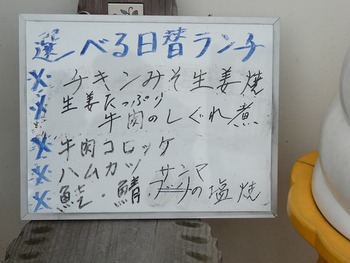 選べる日替ランチ
X・チキンみそ生姜焼
X・生姜たっぷり
牛肉のしぐれ煮
X・牛肉コロッケ
X・ハムカツ
X・鮭・鯖・サンマの塩焼